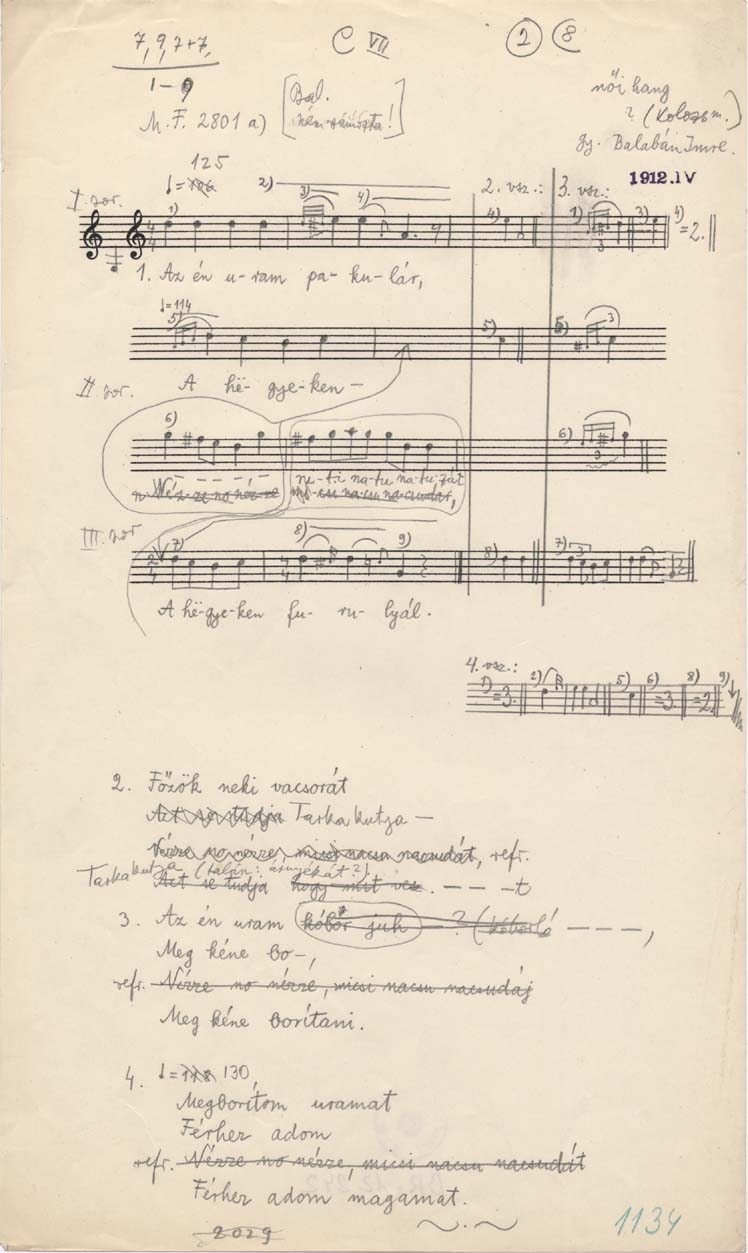 7, 9, 7+7,
C VII
2 8
1-9
M. F. 2801 a)
Bal.
női hang
? (Kolozs m.)
gy. Balabán Imre.
1912.IV
125
2)
3)
4)
2. vsz.:
3. vsz.:
I. sor.
1)
4)
1)
3
3)
4) =2.
1. Az én u-ram pa-ku-lár,
♩=114
5)
5)
3
A hë-gye-ken-
II sor.
6)
6)
3
Néz-ze no néz-ze
ne-ti na-tu na-tu-ját
III. sor
7)
8)
9)
8)
7)
A hë-gye-ken fu-ru-lyál.
4. vsz.:
1) =3.
2)
5)
6) =3
8) =2
9)
2. Főzök neki vacsorát
Azt se tudja Tarka kutya —
Nézze no nézze, micsi nacsu nacsudát, refr.
Tarka kutya (talán: árnyékát?)
Azt se tudja hogy mit vesz. — — — -t
3. Az én uram kóbor juh — ? (kóborló — — —,
Meg kéne bo-,
refr. Nézze no nézze, micsi nacsu nacsudáj
Meg kéne borítani.
4. ♩=118 130
Megborítom uramat
Férhez adom
refr. Nézze no nézze, micsi nacsu nacsudát
Férhez adom magamat.
2029
1134